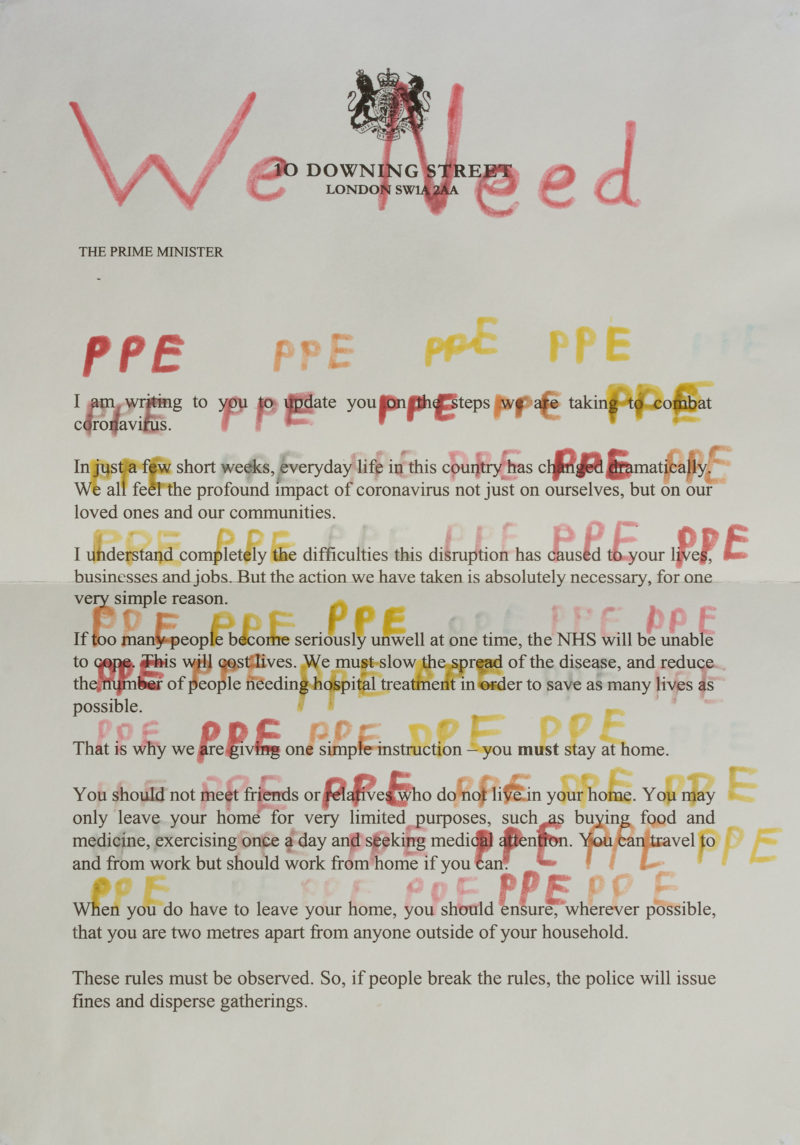 We Need
10 DOWNING STREET
LONDON SW1A 2AA
THE PRIME MINISTER
PPE PPE PPE PPE PPE
I am writing to you to update you on the steps we are taking to combat
PPE PPE PPE PPE PPE
coronavirus.
In just a few short weeks, everyday life in this country has changed dramatically.
PPE PPE PPE PPE PPE PPE
We all feel the profound impact of coronavirus not just on ourselves, but on our
loved ones and our communities.
PPE PPE PPE PPE PPE PPE
I understand completely the difficulties this disruption has caused to your lives,
businesses and jobs. But the action we have taken is absolutely necessary, for one
very simple reason.
PPE PPE PPE PPE PPE PPE
If too many people become seriously unwell at one time, the NHS will be unable
to cope. This will cost lives. We must slow the spread of the disease, and reduce
PPE PPE PPE PPE PPE PPE
the number of people needing hospital treatment in order to save as many lives as
possible.
PPE PPE PPE PPE PPE PPE
That is why we are giving one simple instruction – you must stay at home.
PPE PPE PPE PPE PPE PPE
You should not meet friends or relatives who do not live in your home. You may
only leave your home for very limited purposes, such as buying food and
medicine, exercising once a day and seeking medical attention. You can travel to
PPE PPE PPE PPE PPE PPE
and from work but should work from home if you can.
PPE PPE PPE PPE PPE PPE
When you do have to leave your home, you should ensure, wherever possible,
that you are two metres apart from anyone outside of your household.
These rules must be observed. So, if people break the rules, the police will issue
fines and disperse gatherings.